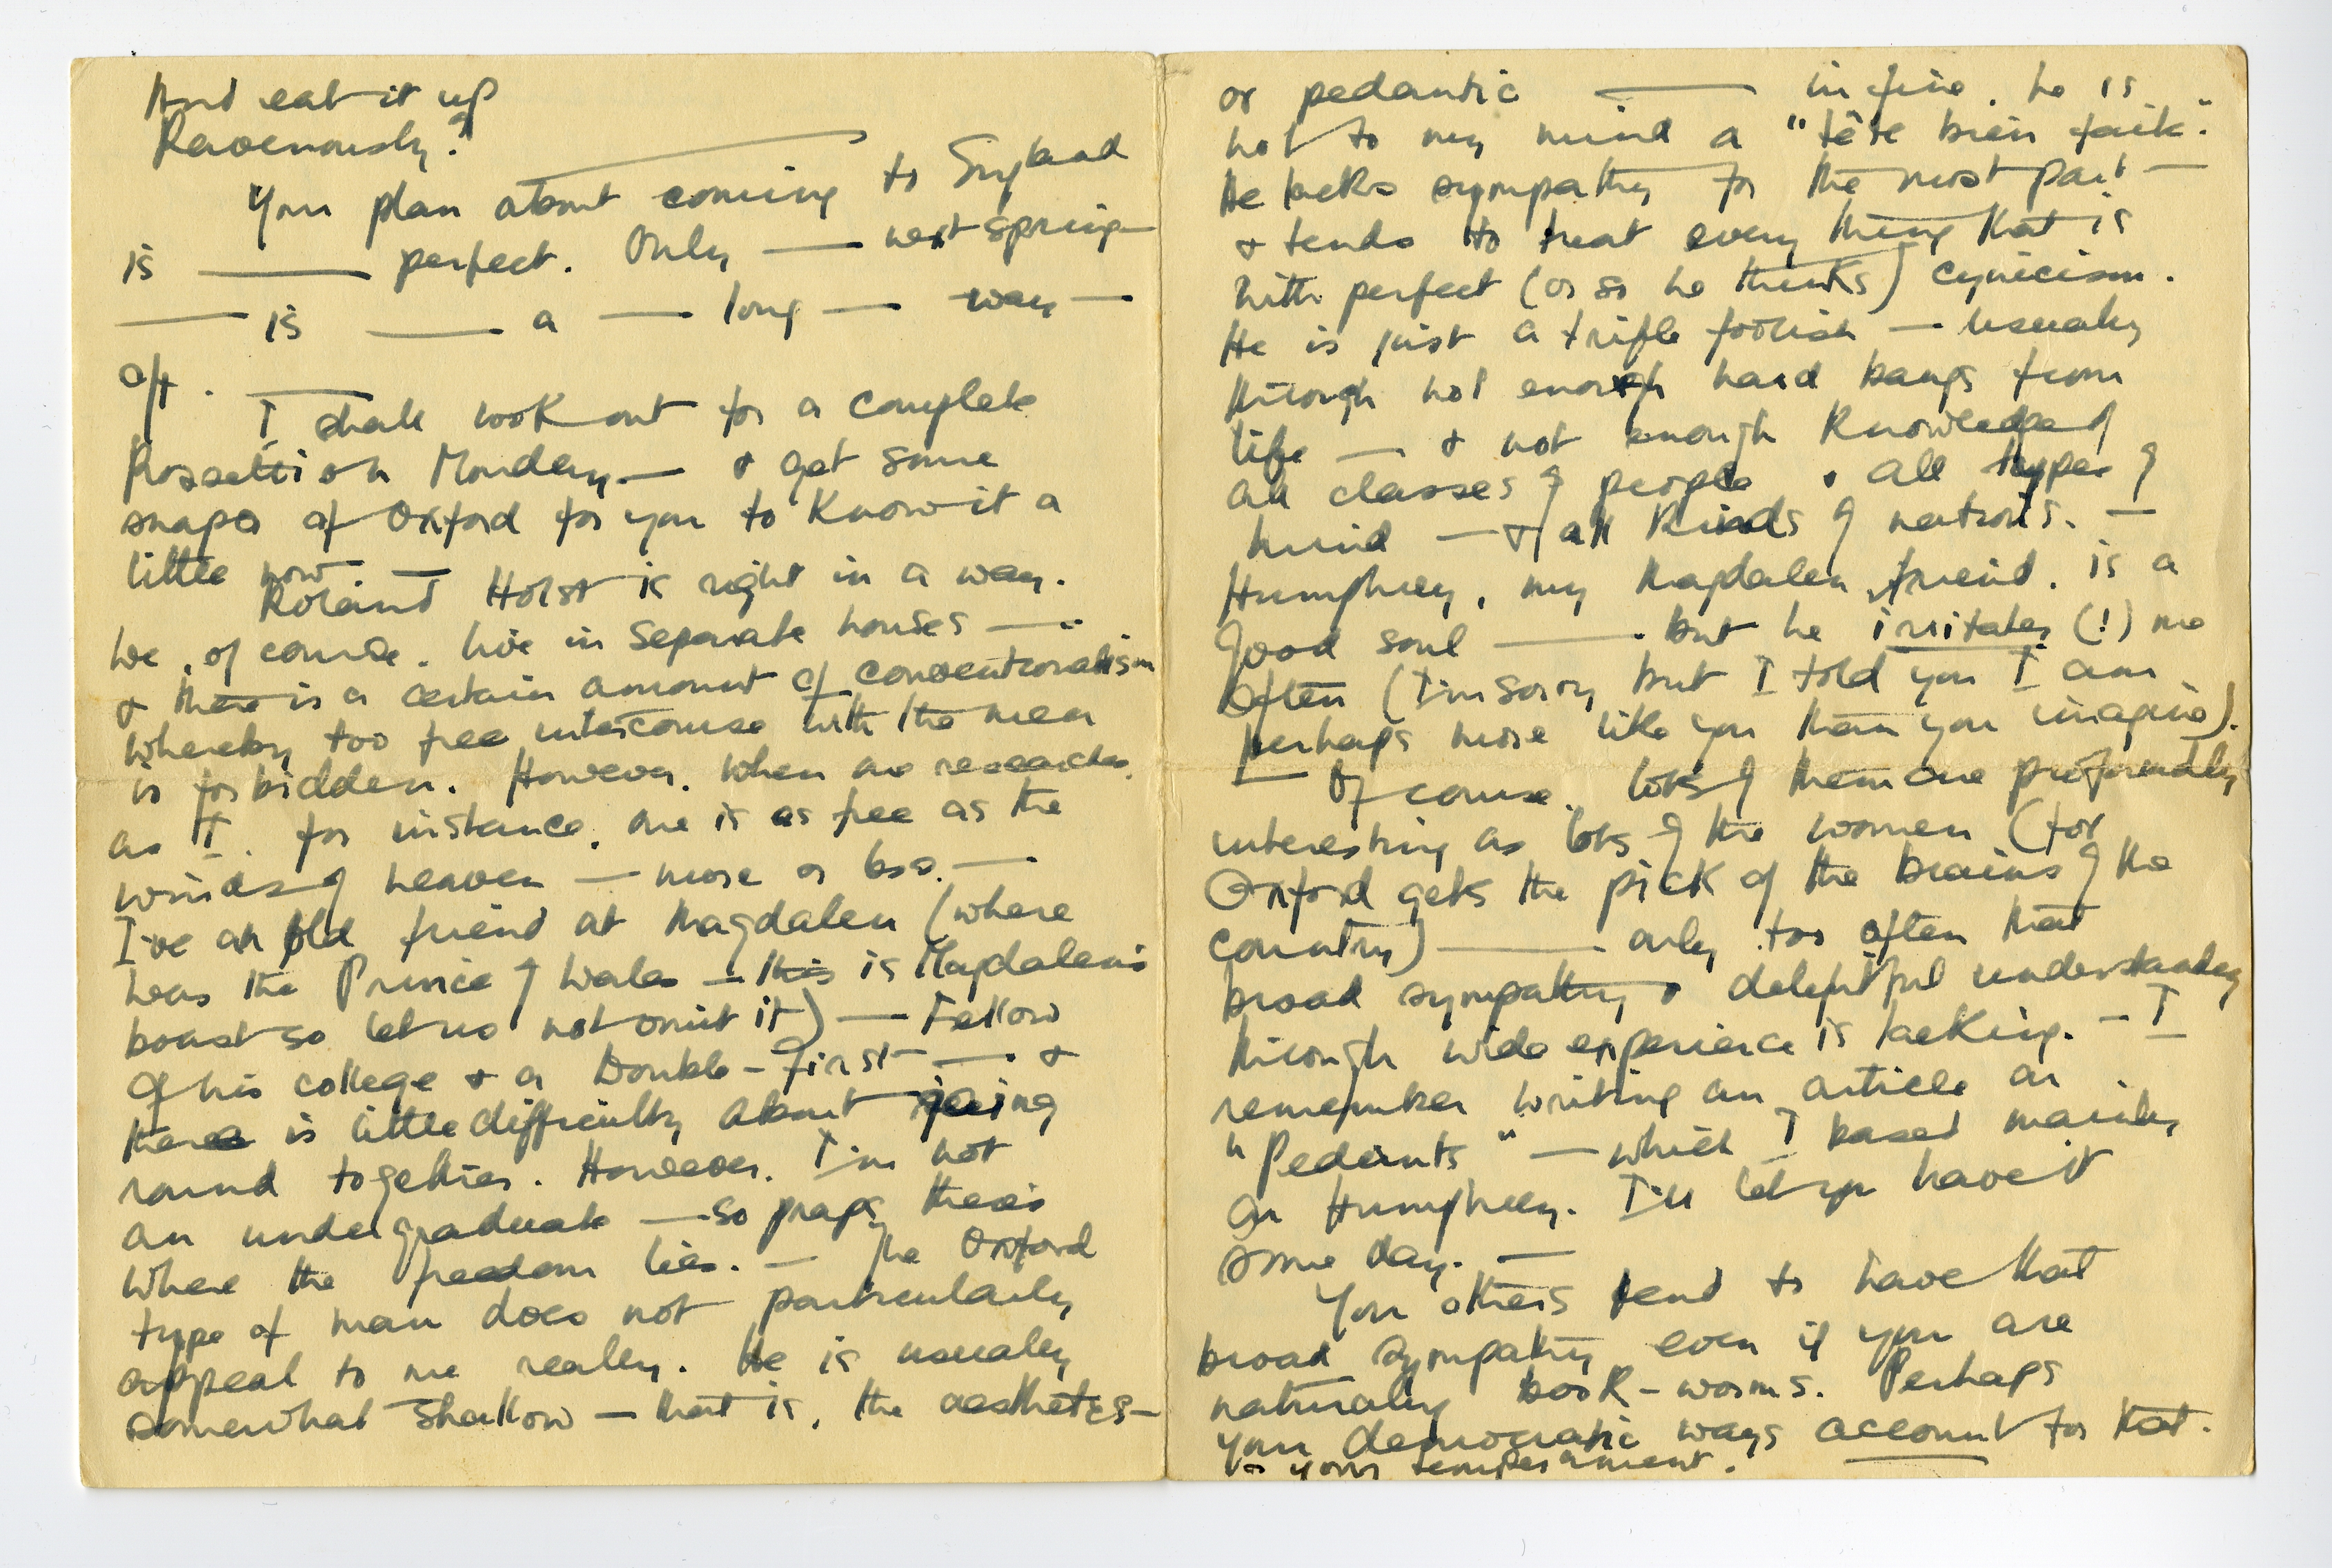 And eat it up
Ravenously?
Your plan about coming to England
is —— perfect. Only —— next spring —
—— is —— a —— long —— way —
off.
I shall look out for a complete
Rossetti on Monday. — & get some
snaps of Oxford for you to know it a
little now. —
Roland Holst is right in a way.
We, of course, live in separate houses ——
& there is a certain amount of conventionalism
whereby too free intercourse with the men
is forbidden. However, when one researches,
as I, for instance, one is as free as the
winds of heaven — more or less. ——
I've an old friend at Magdalen (where
was the Prince of Wales — this is Magdalen's
boast so let us not omit it) —— Fellow
of his college & a Double-First —— &
there is little difficulty about going
round together. However, I'm not
an undergraduate — so praps there's
where the freedom lies. — The Oxford
type of man does not particularly
appeal to me really. He is usually
somewhat shallow — that is, the aesthetes —
or pedantic —— in fine, he is
not to my mind a "tête bien faite".
He lacks sympathy for the most part —
& tends to treat every thing that is
with perfect (or so he thinks) cynicism.
He is just a trifle foolish — usually
through not enough hard bangs from
life —— & not enough knowledge of
all classes of people & all types of
mind — & all kinds of nations. —
Humphrey, my Magdalen friend, is a
good soul —— but he irritates (!) me
often (I'm sorry but I told you I am
perhaps more like you than you imagine).
— Of course, lots of them are profoundly
interesting as lots of the women (for
Oxford gets the pick of the brains of the
country) —— only too often that
broad sympathy & delightful understanding
through wide experience is lacking. — I
remember writing an article on
"Pedants" — which I based mainly
on Humphrey. I'll let you have it
some day. —
You others tend to have that
broad sympathy even if you are
naturally book-worms. Perhaps
your democratic ways account for that.
or your temperament.